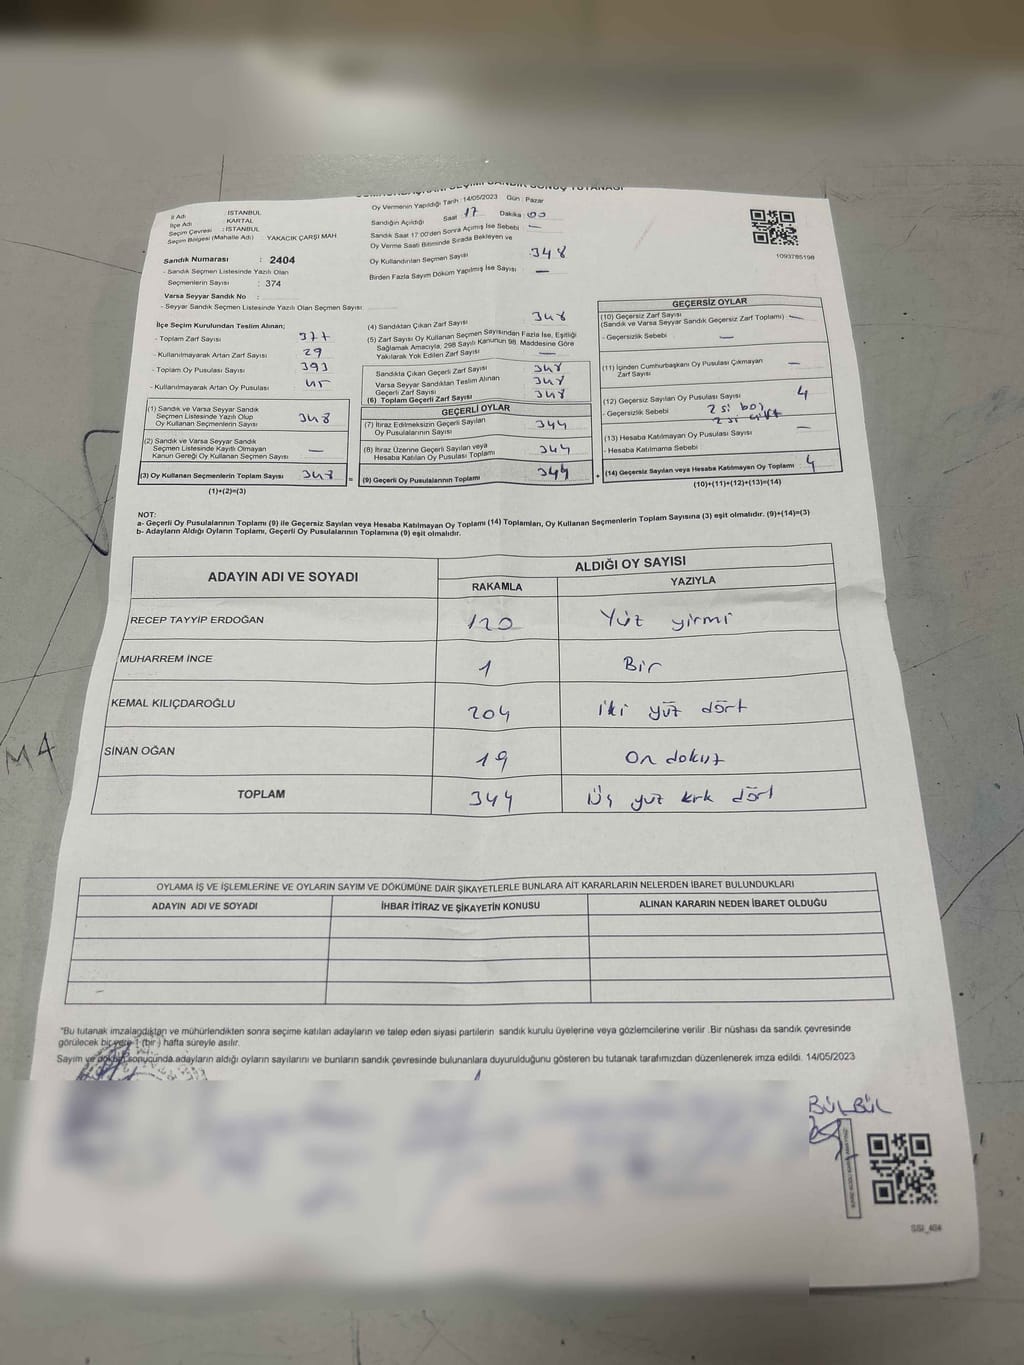 CUMHURBAŞKANI SEÇİMİ SANDIK SONUÇ TUTANAĞI
İl Adı : İSTANBUL
İlçe Adı : KARTAL
Seçim Çevresi : İSTANBUL
Seçim Bölgesi (Mahalle Adı) : YAKACIK ÇARŞI MAH
Sandık Numarası : 2404
- Sandık Seçmen Listesinde Yazılı Olan
Seçmenlerin Sayısı : 374
Varsa Seyyar Sandık No :
- Seyyar Sandık Seçmen Listesinde Yazılı Olan Seçmen Sayısı :
Oy Vermenin Yapıldığı Tarih : 14/05/2023 Gün : Pazar
Sandığın Açıldığı Saat 17 Dakika 00
Sandık Saat 17:00'den Sonra Açımış İse Sebebi —
Oy Verme Saati Bitiminde Sırada Bekleyen ve
Oy Kullandırılan Seçmen Sayısı : 348
Birden Fazla Sayım Döküm Yapılmış İse Sayısı : —
1093785198
İlçe Seçim Kurulundan Teslim Alınan;
- Toplam Zarf Sayısı 377
- Kullanılmayarak Artan Zarf Sayısı 29
- Toplam Oy Pusulası Sayısı 393
- Kullanılmayarak Artan Oy Pusulası 45
(1) Sandık ve Varsa Seyyar Sandık
Seçmen Listesinde Yazılı Olup
Oy Kullanan Seçmenlerin Sayısı 348
(2) Sandık ve Varsa Seyyar Sandık
Seçmen Listesinde Kayıtlı Olmayan
Kanun Gereği Oy Kullanan Seçmen Sayısı —
(3) Oy Kullanan Seçmenlerin Toplam Sayısı 348 =
(1)+(2)=(3)
(4) Sandıktan Çıkan Zarf Sayısı 348
(5) Zarf Sayısı Oy Kullanan Seçmen Sayısından Fazla İse, Eşitliği
Sağlamak Amacıyla, 298 Sayılı Kanunun 98. Maddesine Göre
Yakılarak Yok Edilen Zarf Sayısı —
Sandıkta Çıkan Geçerli Zarf Sayısı 348
Varsa Seyyar Sandıktan Teslim Alınan
Geçerli Zarf Sayısı 348
(6) Toplam Geçerli Zarf Sayısı 348
GEÇERLİ OYLAR
(7) İtiraz Edilmeksizin Geçerli Sayılan
Oy Pusulalarının Sayısı 344
(8) İtiraz Üzerine Geçerli Sayılan veya
Hesaba Katılan Oy Pusulası Toplamı 344
(9) Geçerli Oy Pusulalarının Toplamı 344 +
GEÇERSİZ OYLAR
(10) Geçersiz Zarf Sayısı
(Sandık ve Varsa Seyyar Sandık Geçersiz Zarf Toplamı) —
- Geçersizlik Sebebi —
(11) İçinden Cumhurbaşkanı Oy Pusulası Çıkmayan
Zarf Sayısı —
(12) Geçersiz Sayılan Oy Pusulası Sayısı 4
- Geçersizlik Sebebi 2 si boş
2 si çift
(13) Hesaba Katılmayan Oy Pusulası Sayısı —
- Hesaba Katılmama Sebebi :
(14) Geçersiz Sayılan veya Hesaba Katılmayan Oy Toplamı 4
(10)+(11)+(12)+(13)=(14)
NOT:
a- Geçerli Oy Pusulalarının Toplamı (9) ile Geçersiz Sayılan veya Hesaba Katılmayan Oy Toplamı (14) Toplamları, Oy Kullanan Seçmenlerin Toplam Sayısına (3) eşit olmalıdır. (9)+(14)=(3)
b- Adayların Aldığı Oyların Toplamı, Geçerli Oy Pusulalarının Toplamına (9) eşit olmalıdır.
ADAYIN ADI VE SOYADI
ALDIĞI OY SAYISI
RAKAMLA YAZIYLA
RECEP TAYYİP ERDOĞAN 120 Yüz yirmi
MUHARREM İNCE 1 Bir
KEMAL KILIÇDAROĞLU 204 İki yüz dört
SİNAN OĞAN 19 On dokuz
TOPLAM 344 Üç yüz kırk dört
M4
OYLAMA İŞ VE İŞLEMLERİNE VE OYLARIN SAYIM VE DÖKÜMÜNE DAİR ŞİKAYETLERLE BUNLARA AİT KARARLARIN NELERDEN İBARET BULUNDUKLARI
ADAYIN ADI VE SOYADI İHBAR İTİRAZ VE ŞİKAYETİN KONUSU ALINAN KARARIN NEDEN İBARET OLDUĞU
"Bu tutanak imzalandıktan ve mühürlendikten sonra seçime katılan adayların ve talep eden siyasi partilerin sandık kurulu üyelerine veya gözlemcilerine verilir .Bir nüshası da sandık çevresinde
görülecek bir yere 1 (bir ) hafta süreyle asılır.
Sayım ve döküm sonucunda adayların aldığı oyların sayılarını ve bunların sandık çevresinde bulunanlara duyurulduğunu gösteren bu tutanak tarafımızdan düzenlenerek imza edildi. 14/05/2023
BÜLBÜL
SSI_404